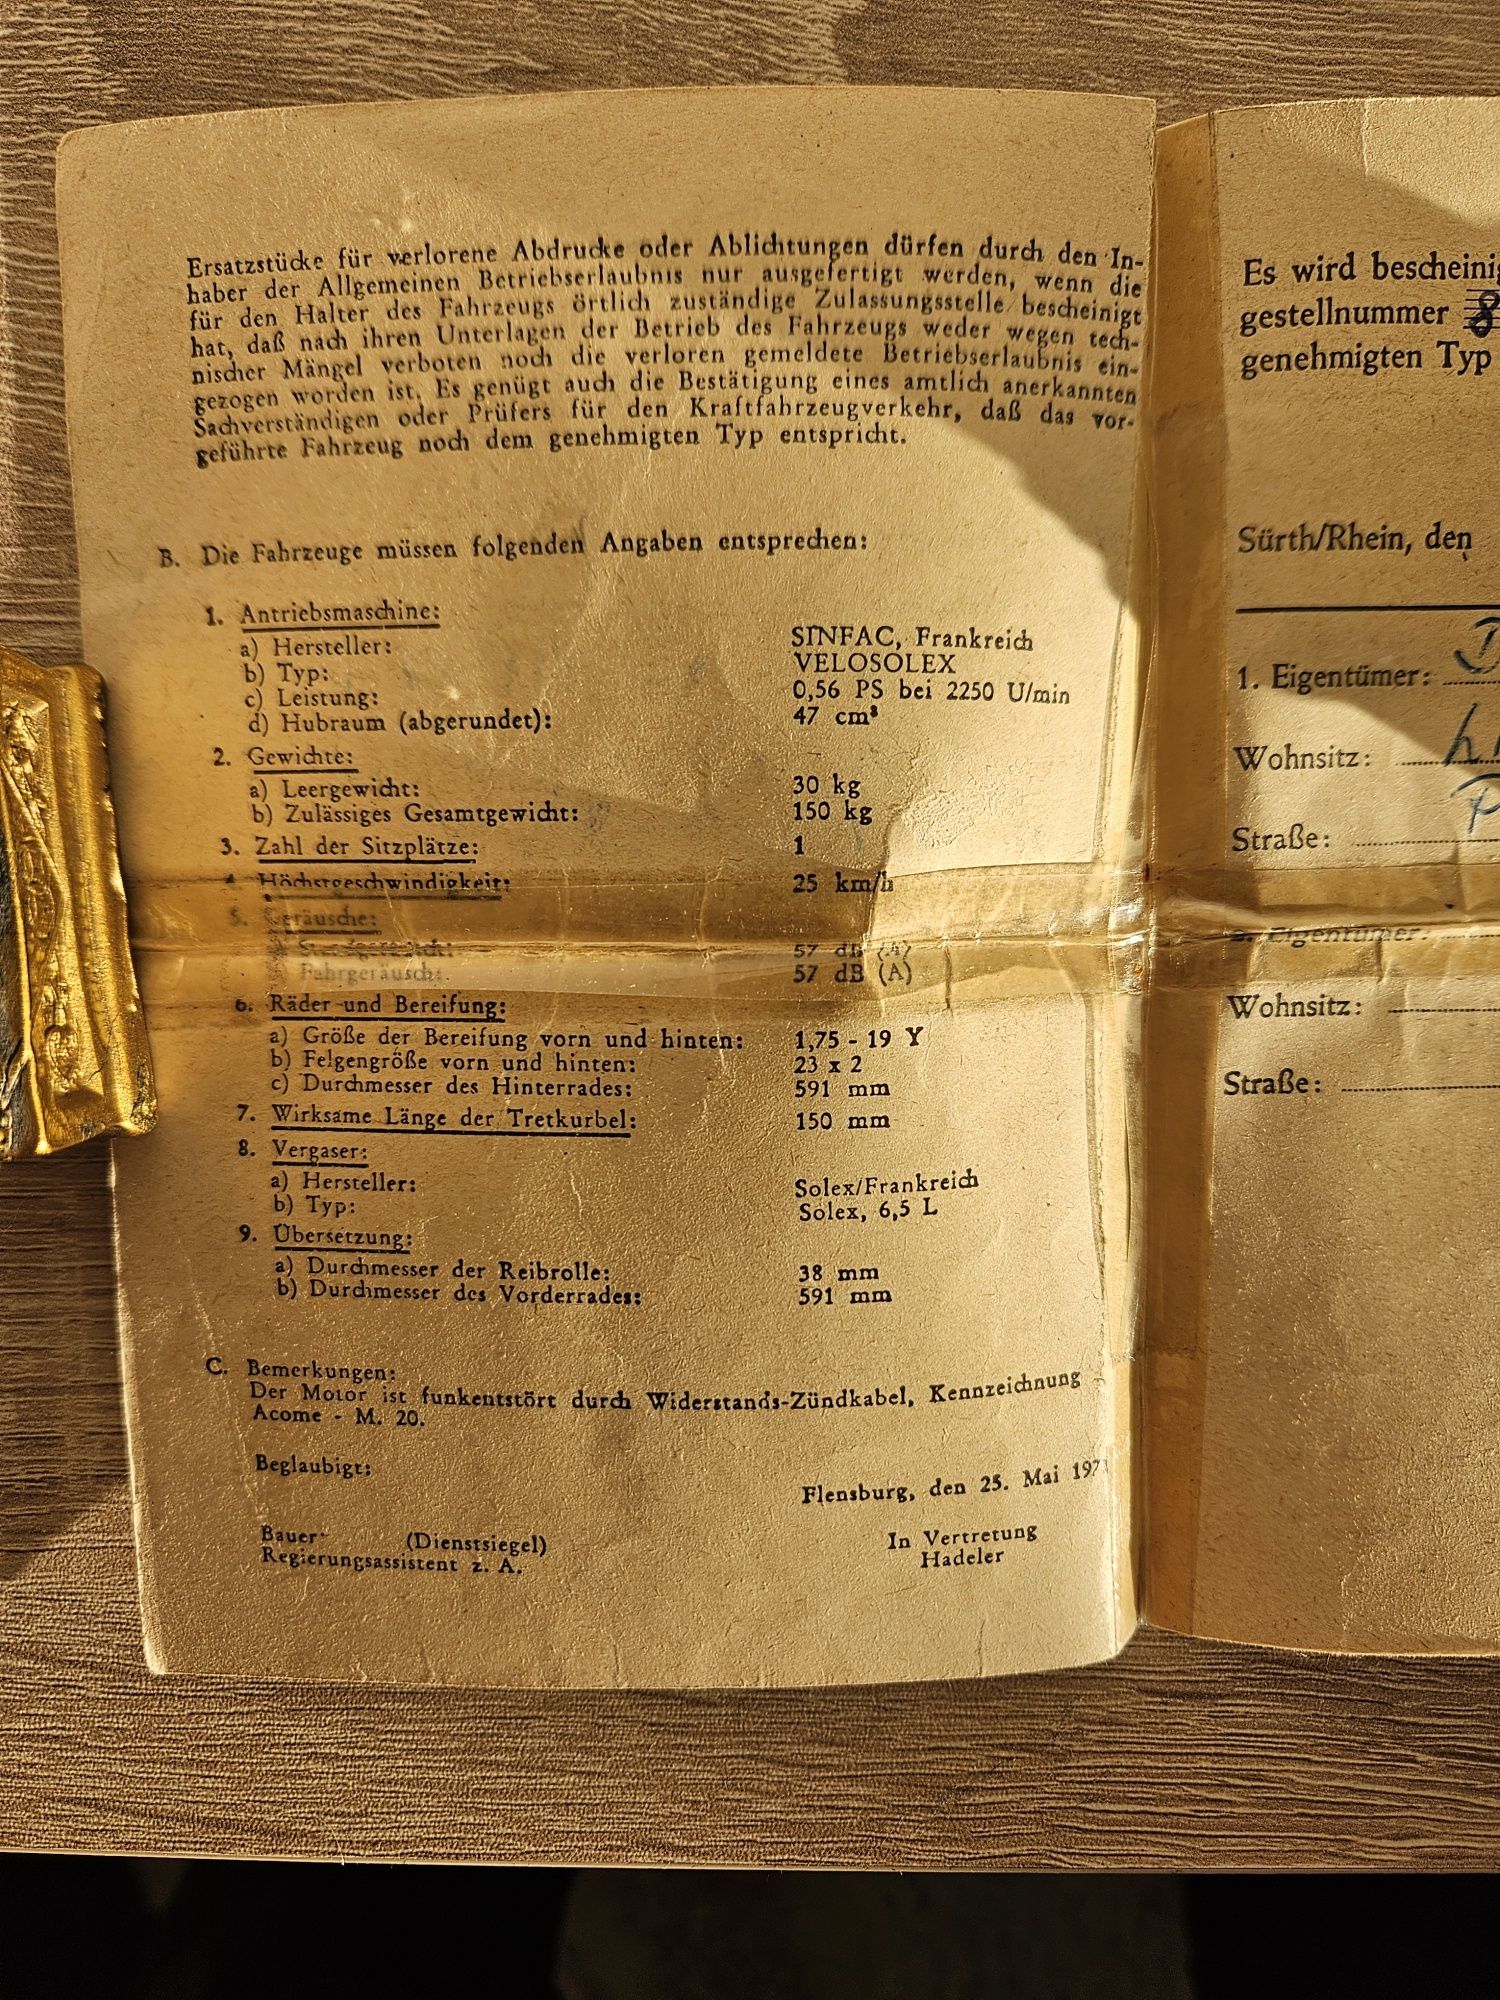 Ersatzstücke für verlorene Abdrucke oder Ablichtungen dürfen durch den In-
haber der Allgemeinen Betriebserlaubnis nur ausgefertigt werden, wenn die
für den Halter des Fahrzeugs örtlich zuständige Zulassungsstelle bescheinigt
hat, daß nach ihren Unterlagen der Betrieb des Fahrzeugs weder wegen tech-
nischer Mängel verboten noch die verloren gemeldete Betriebserlaubnis ein-
gezogen worden ist. Es genügt auch die Bestätigung eines amtlich anerkannten
Sachverständigen oder Prüfers für den Kraftfahrzeugverkehr, daß das vor-
geführte Fahrzeug noch dem genehmigten Typ entspricht.
B. Die Fahrzeuge müssen folgenden Angaben entsprechen:
1. Antriebsmaschine:
a) Hersteller: SINFAC, Frankreich
b) Typ: VELOSOLEX
c) Leistung: 0,56 PS bei 2250 U/min
d) Hubraum (abgerundet): 47 cm³
2. Gewichte:
a) Leergewicht: 30 kg
b) Zulässiges Gesamtgewicht: 150 kg
3. Zahl der Sitzplätze: 1
4. Höchstgeschwindigkeit: 25 km/h
5. Geräusche:
a) Standgeräusch: 57 dB (A)
b) Fahrgeräusch: 57 dB (A)
6. Räder und Bereifung:
a) Größe der Bereifung vorn und hinten: 1,75 - 19 Y
b) Felgengröße vorn und hinten: 23 x 2
c) Durchmesser des Hinterrades: 591 mm
7. Wirksame Länge der Tretkurbel: 150 mm
8. Vergaser:
a) Hersteller: Solex/Frankreich
b) Typ: Solex, 6,5 L
9. Übersetzung:
a) Durchmesser der Reibrolle: 38 mm
b) Durchmesser des Vorderrades: 591 mm
C. Bemerkungen:
Der Motor ist funkentstört durch Widerstands-Zündkabel, Kennzeichnung
Acome - M. 20.
Beglaubigt:
Flensburg, den 25. Mai 1971
Bauer (Dienstsiegel) In Vertretung
Regierungsassistent z. A. Hadeler
Es wird bescheinig
gestellnummer 8
genehmigten Typ
Sürth/Rhein, den
1. Eigentümer:
Wohnsitz:
Straße:
2. Eigentümer:
Wohnsitz:
Straße: